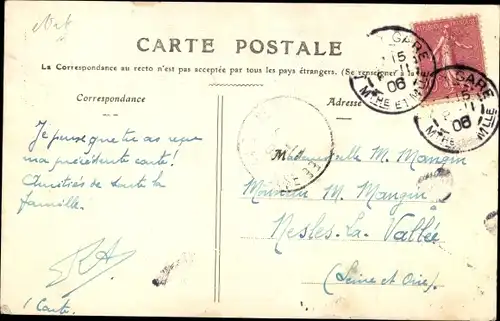 CARTE POSTALE
La Correspondance au recto n'est pas acceptée par tous les pays étrangers. (Se renseigner à la
Correspondance
Adresse
GARE
15
06
MTHE ET MLLE
GARE
15
11
06
Je pense que tu as reçu
ma précédente carte!
Amitiés de toute la
famille.
RA
1 Carte.
Mademoiselle M. Mangin
Monsieur M. Mangin
Nesles-La-Vallée
(Seine et Oise)